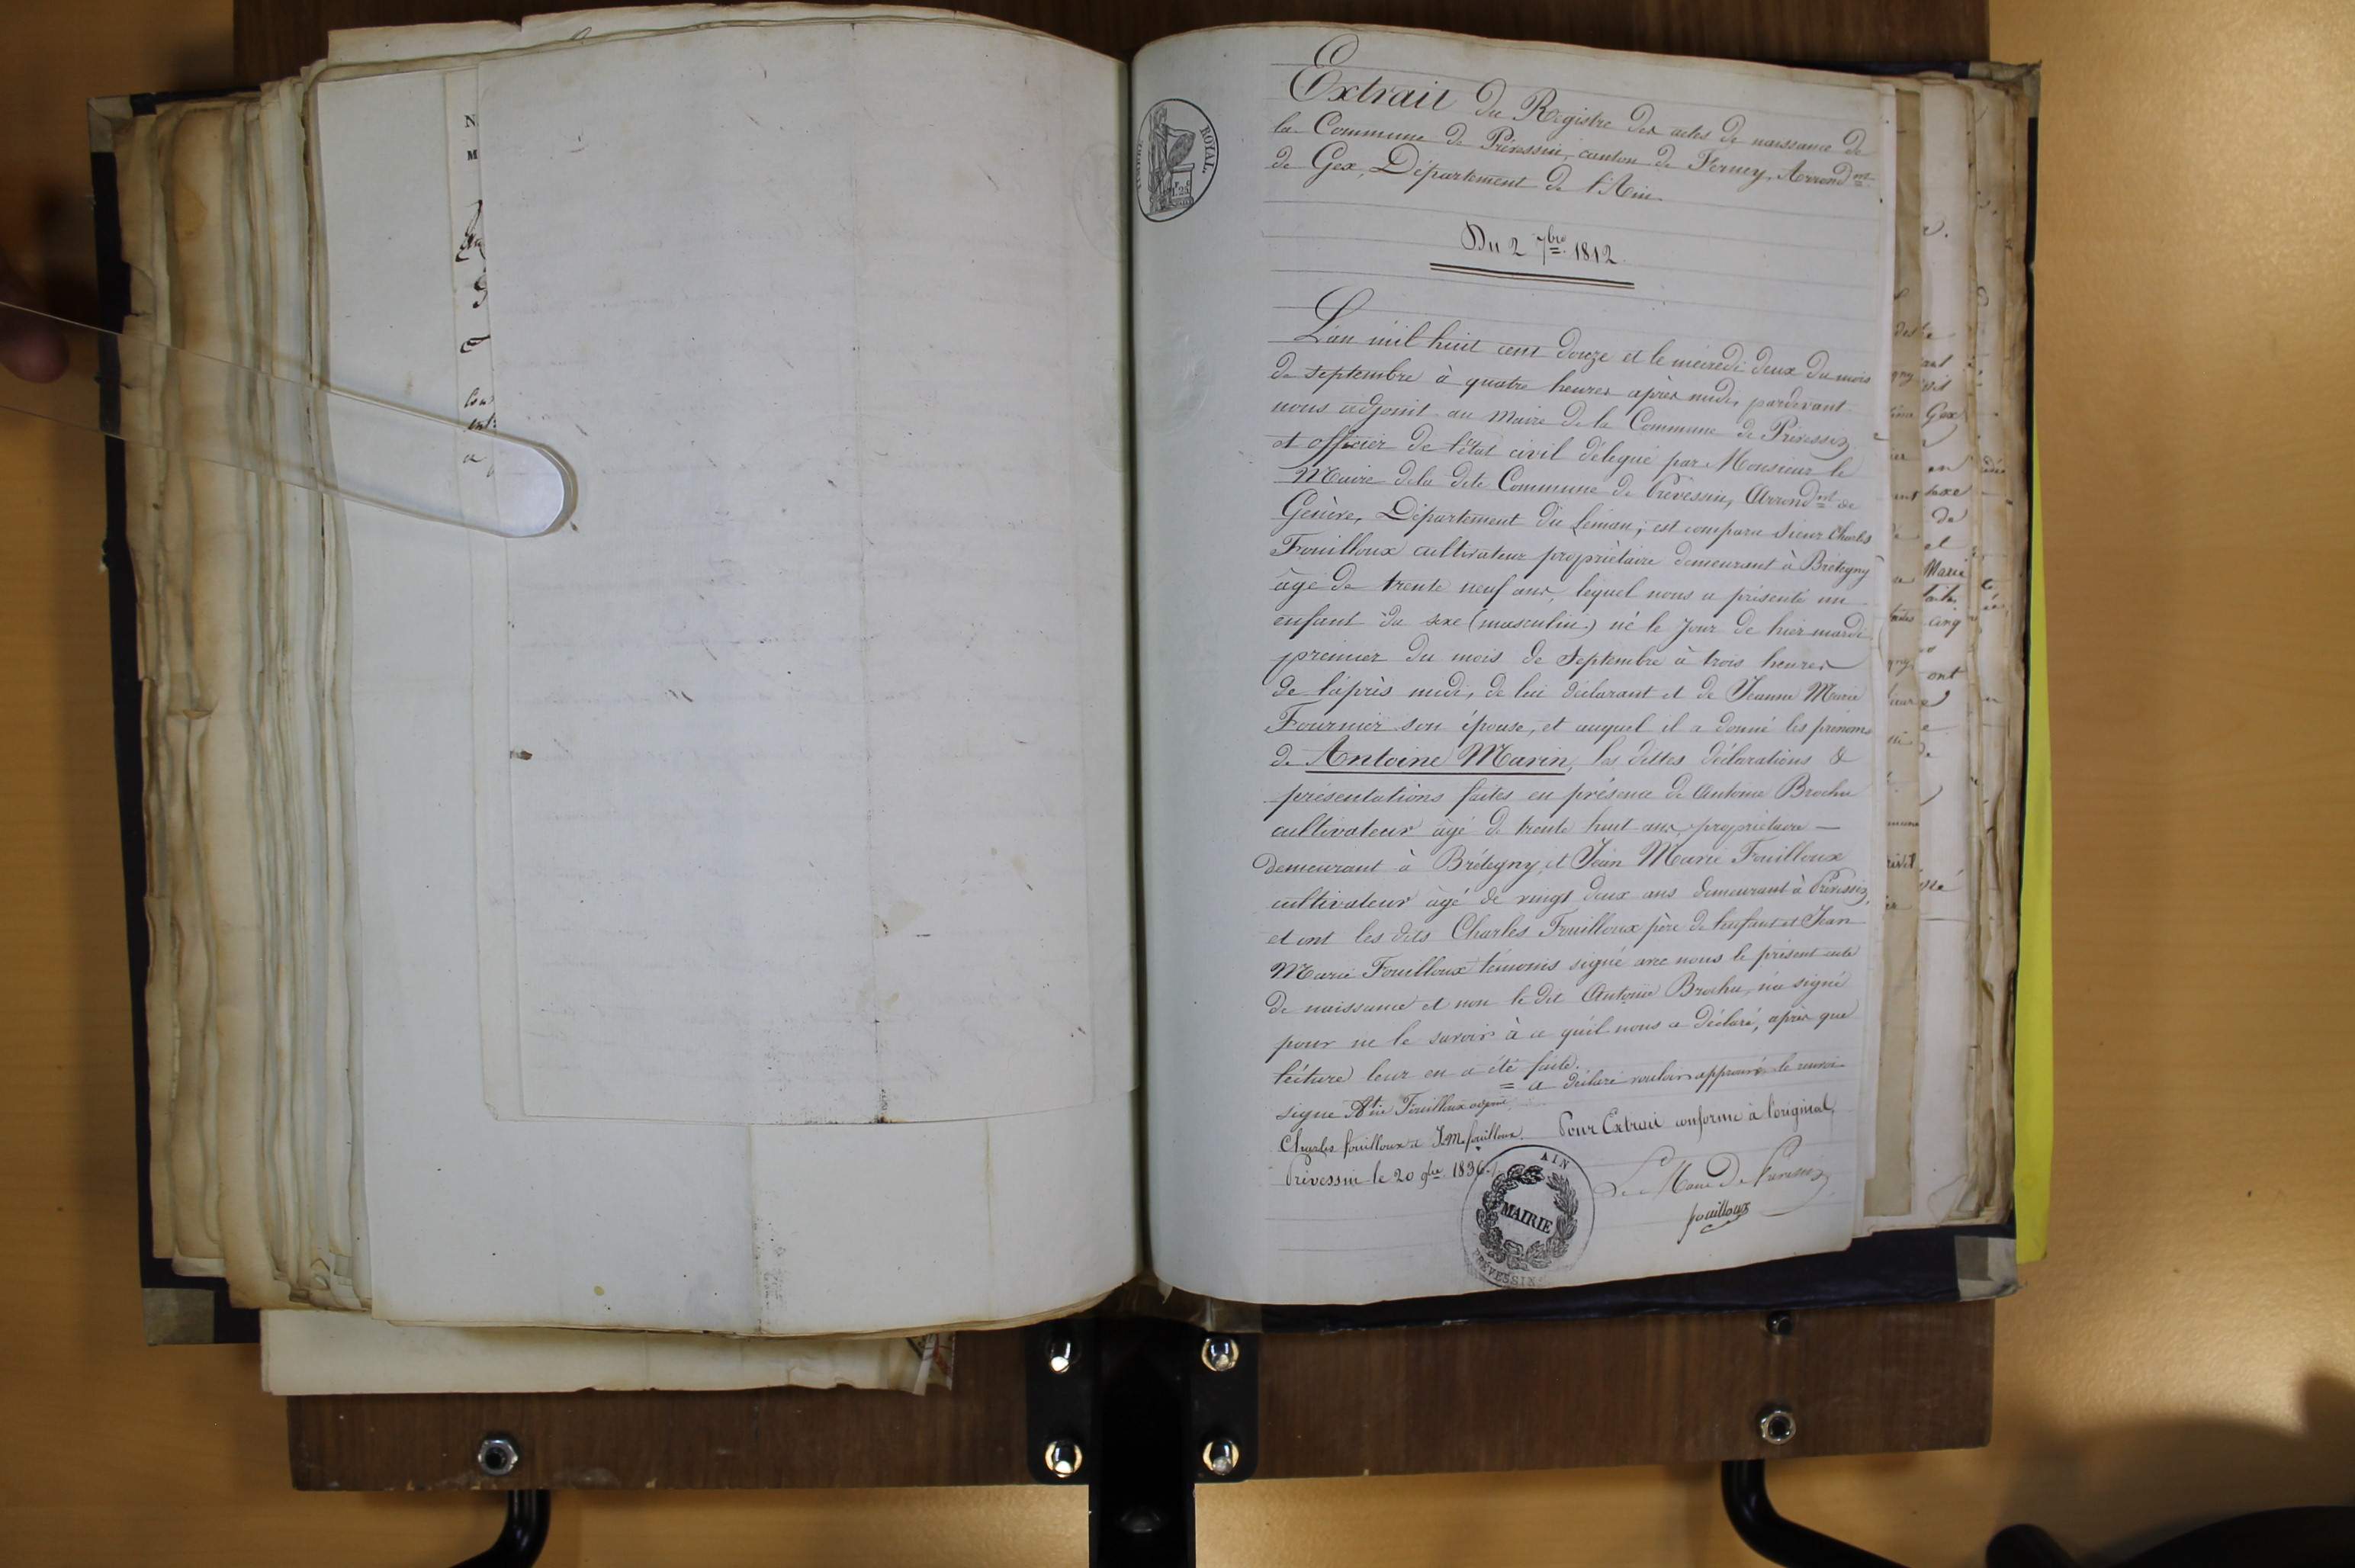 N
M
con
ent
TIMBRE ROYAL
Extrait du Registre des actes de naissance de
la Commune de Prévessin, canton de Ferney, Arrondmt
de Gex, Département de l'Ain.
Du 2 7bre 1812.
L'an mil huit cent douze et le mercredi deux du mois
de septembre à quatre heures après midi, pardevant
nous adjoint au Maire de la Commune de Prévessin,
et officier de l'état civil délégué par Monsieur le
Maire de la dite Commune de Prévessin, Arrondmt de
Genève, Département du Léman, est comparu sieur Charles
Fouilloux cultivateur propriétaire demeurant à Brétegny
âgé de trente neuf ans, lequel nous a présenté un
enfant du sexe (masculin) né le jour de hier mardi
premier du mois de Septembre à trois heures
de l'après midi, de lui déclarant et de Jeanne Marie
Fournier son épouse, et auquel il a donné les prénoms
de Antoine Marin, les dittes déclarations &
présentations faites en présence de Antoine Brochu
cultivateur âgé de trente huit ans, propriétaire —
demeurant à Brétegny, et Jean Marie Fouilloux
cultivateur âgé de vingt deux ans demeurant à Prévessin,
et ont les dits Charles Fouilloux père de l'enfant et Jean
Marie Fouilloux témoins signé avec nous le présent acte
de naissance et non le dit Antoine Brochu, n'a signé
pour ne le savoir à ce qu'il nous a déclaré, après que
lecture leur en a été faite.
= a déclaré vouloir approuvé le renvoi
signé Fouilloux adjoint,
Charles fouilloux & J. M. fouilloux. Pour Extrait conforme à l'original,
Prévessin le 20 9bre 1836.
Le Maire de Prévessin
fouilloux
AIN
MAIRIE
PRÉVESSIN
Gex
en
sexe
de
et
Marie
cinq
ont
de